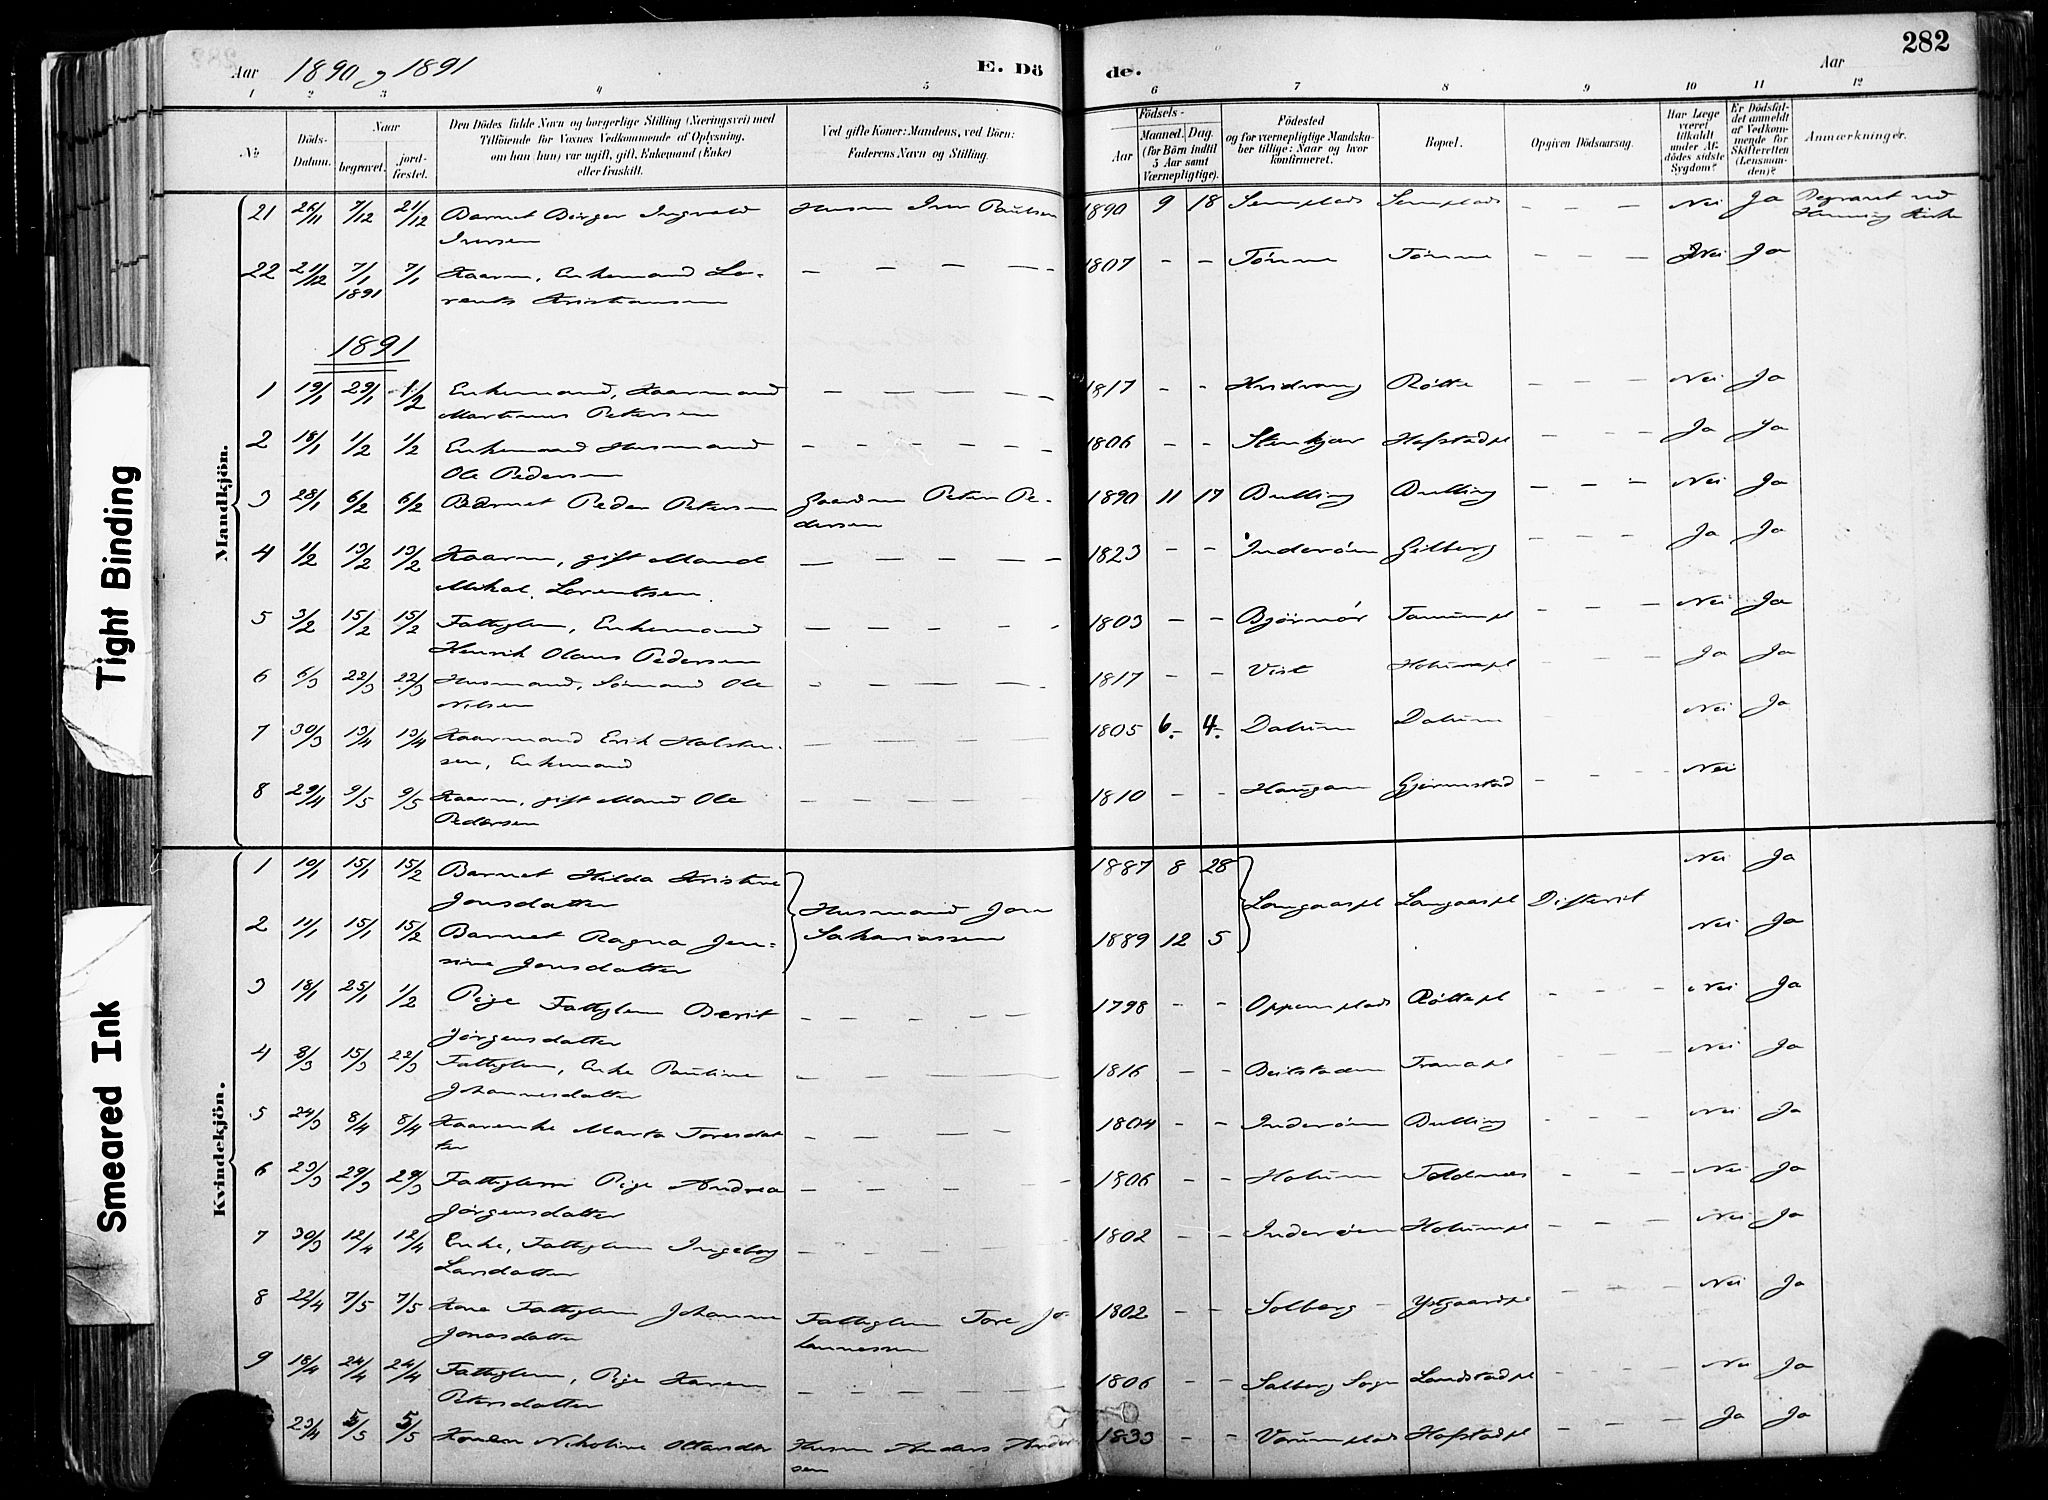 282
Aar 1890 og 1891 E. Dö de. Aar
1 2 3 4 5 6 7 8 9 10 11 12
№ Döds-Datum. Naar begravet. jord-fæstet. Den Dödes fulde Navn og borgerlige Stilling (Næringsvei) med Tilföiende for Voxnes Vedkommende af Oplysning, om han (hun) var ugift, gift, Enkemand (Enke) eller fraskilt. Ved gifte Koner: Mandens, ved Börn: Faderens Navn og Stilling. Födsels- Aar Maaned. Dag. (for Börn indtil 5 Aar samt Værnepligtige). Födested og for værnepligtige Mandskaber tillige: Naar og hvor konfirmeret. Bopæl. Opgiven Dödsaarsag. Har Læge været tilkaldt under Afdödes sidste Sygdom? Er Dödsfaldet anmeldt af Vedkommende for Skifteretten (Lensmanden)? Anmærkninger.
Mandkjön.
21 26/11 7/12 21/12 Barnet Birger Ingvald Husm Iver Paulsen 1890 9 18 Semplads Semplads - - - Nei Ja Begravet ved
Iversen Henning Kirke
22 21/12 7/1 7/1 Kaarm, Enkemand Lo- - - - - 1807 - - Tömme Tömme - - - Nei Ja
1891 rents Kristiansen
1891
1 19/1 29/1 1/2 Enkemand, Kaarmand - - - - 1817 - - Hvidvang Røtte - - - Nei Ja
Martinus Petersen
2 18/1 1/2 1/2 Enkemand Husmand - - - - 1806 - - Stenkjær Hofstadpl - - - Ja Ja
Ole Pedersen
3 28/1 6/2 6/2 Barnet Peder Petersen Gaardm Peter Pe- 1890 11 17 Bulling Bulling - - - Nei Ja
dersen
4 1/2 13/2 13/2 Kaarm, gift Mand - - - - 1823 - - Inderöen Gilberg - - - Ja Ja
Mikal Lorentsen.
5 3/2 15/2 15/2 Fattiglem, Enkemand - - - - 1803 - - Bjørnør Tanumpl - - - Nei Ja
Henrik Olaus Pedersen
6 6/3 22/3 22/3 Husmand, Sømand Ole - - - - 1817 - - Vist Holumpl - - - Ja Ja
Nilsen
7 30/3 13/4 13/4 Kaarmand Erik Holsten- - - - - 1805 6. 4. Dalum Dalum Nei Ja
sen, Enkemand
8 29/4 9/5 9/5 Kaarm, gift Mand Ole - - - - 1810 - - Haugan Gjørmstad - - - Nei
Pedersen
Kvindekjön.
1 10/1 15/1 15/2 Barnet Hilda Kristine 1887 8 28 Nei Ja
Jonsdatter Husmand Jon Langaaspl Langaaspl Difterit
2 11/1 15/1 15/2 Barnet Ragna Jen- Sakariassen 1889 12 5 Nei Ja
sine Jonsdatter
3 18/1 25/1 1/2 Pige Fattiglem Berit - - - - 1798 - - Oppemplads Røttepl - - - Nei Ja
Jörgensdatter
4 8/3 15/3 22/3 Fattiglem, Enke Pauline - - - - 1816 - - Beitstaden Tranapl - - - Nei Ja
Johannesdatter
5 24/3 8/4 8/4 Kaarenke Marta Toresdat- - - - - 1804 - - Inderöen Bulling - - - Nei Ja
ter
6 23/3 29/3 29/3 Fattiglem Pige Andrea - - - - 1806 - - Holum Toldnes - - - Nei Ja
Jørgensdatter
7 30/3 12/4 12/4 Enke, Fattiglem Ingeborg - - - - 1802 - - Inderøen Holumpl - - - Nei Ja
Larsdatter
8 22/4 7/5 7/5 Kone Fattiglem Johanna Fattiglem Tore Jo- 1802 - - Solberg Ystgaardpl - - - Nei Ja
Jonasdatter hannessen
9 18/4 24/4 24/4 Fattiglem, Pige Karen - - - - 1806 - - Salberg Sogn Landstadpl - - - Nei Ja
Petersdatter
23/4 5/5 5/5 Konen Nikoline Ottersdtr Husm Anders Ander- 1833 - - Varumplads Hofstadpl - - - Ja Ja
sen
Tight Binding
Smeared Ink